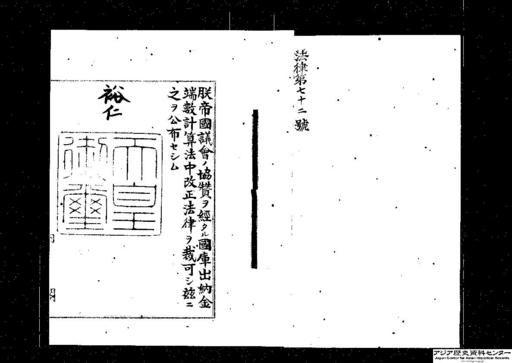 法律第七十二號
朕帝國議會ノ協贊ヲ經タル國庫出納金
端數計算法中改正法律ヲ裁可シ玆ニ
之ヲ公布セシム
裕仁
天皇
御璽
アジア歴史資料センター
Japan Center for Asian Historical Records